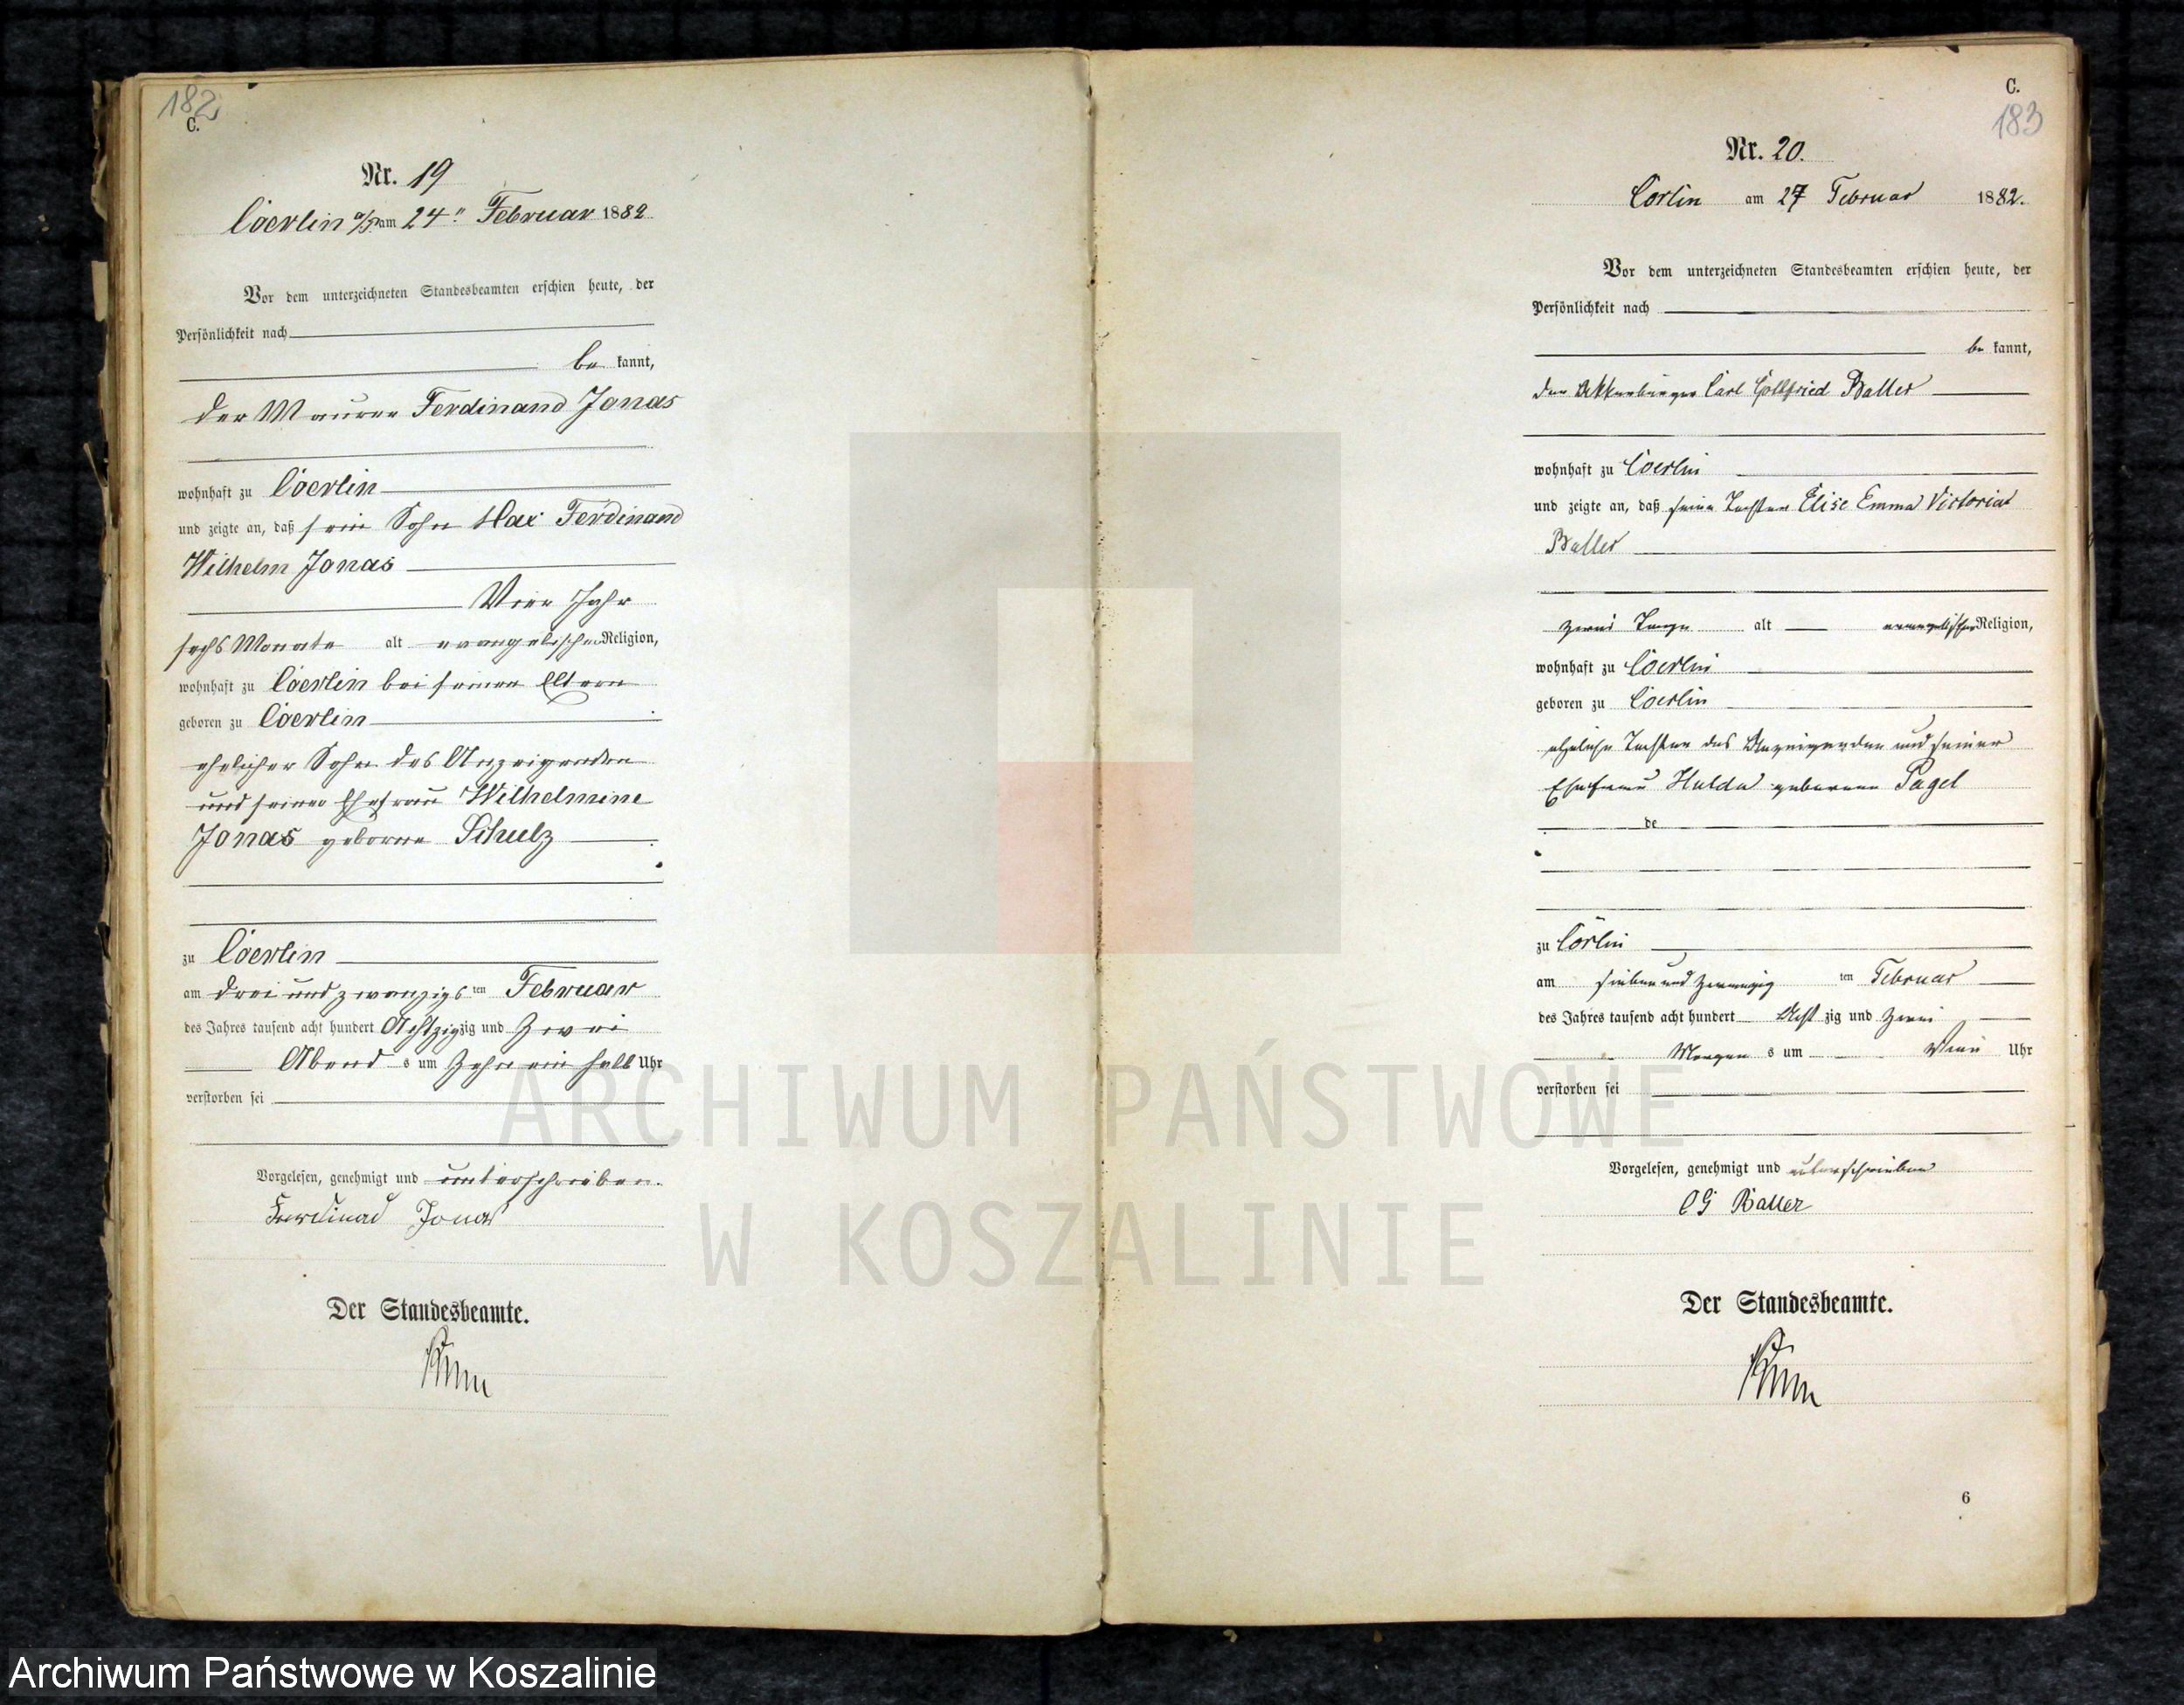 182
C.
Nr. 19
Cöerlin a/P. am 24ⁿ Februar 1882.
Vor dem unterzeichneten Standesbeamten erschien heute, der
Persönlichkeit nach
be kannt,
der Maurer Ferdinand Jonas
wohnhaft zu Cöerlin
und zeigte an, daß sein Sohn Max Ferdinand
Wilhelm Jonas
Vier Jahr
sechs Monate alt evangelischer Religion,
wohnhaft zu Cöerlin bei seinen Eltern
geboren zu Cöerlin
ehelicher Sohn des Anzeigenden
und seiner Ehefrau Wilhelmine
Jonas geborne Schulz
zu Cöerlin
am drei und zwanzigs ten Februar
des Jahres tausend acht hundert Achtzig zig und Zwei
Abend s um Zehn ein halb Uhr
verstorben sei
Vorgelesen, genehmigt und unterschrieben.
Ferdinad Jonas
Der Standesbeamte.
C.
183
Nr. 20.
Cörlin am 27 Februar 1882.
Vor dem unterzeichneten Standesbeamten erschien heute, der
Persönlichkeit nach
be kannt,
der Ackerbürger Carl Gottfried Baller
wohnhaft zu Cöerlin
und zeigte an, daß seine Tochter Elise Emma Victoria
Baller
zwei Tage alt evangelischer Religion,
wohnhaft zu Cöerlin
geboren zu Cöerlin
eheliche Tochter des Anzeigenden und seiner
Ehefrau Hulda geborene Pagel
de
zu Cörlin
am sieben und zwanzig ten Februar
des Jahres tausend acht hundert Acht zig und zwei
Morgen s um Uhr
verstorben sei
Vorgelesen, genehmigt und unterschrieben
CG Baller
Der Standesbeamte.
6
ARCHIWUM PAŃSTWOWE
W KOSZALINIE
Archiwum Państwowe w Koszalinie